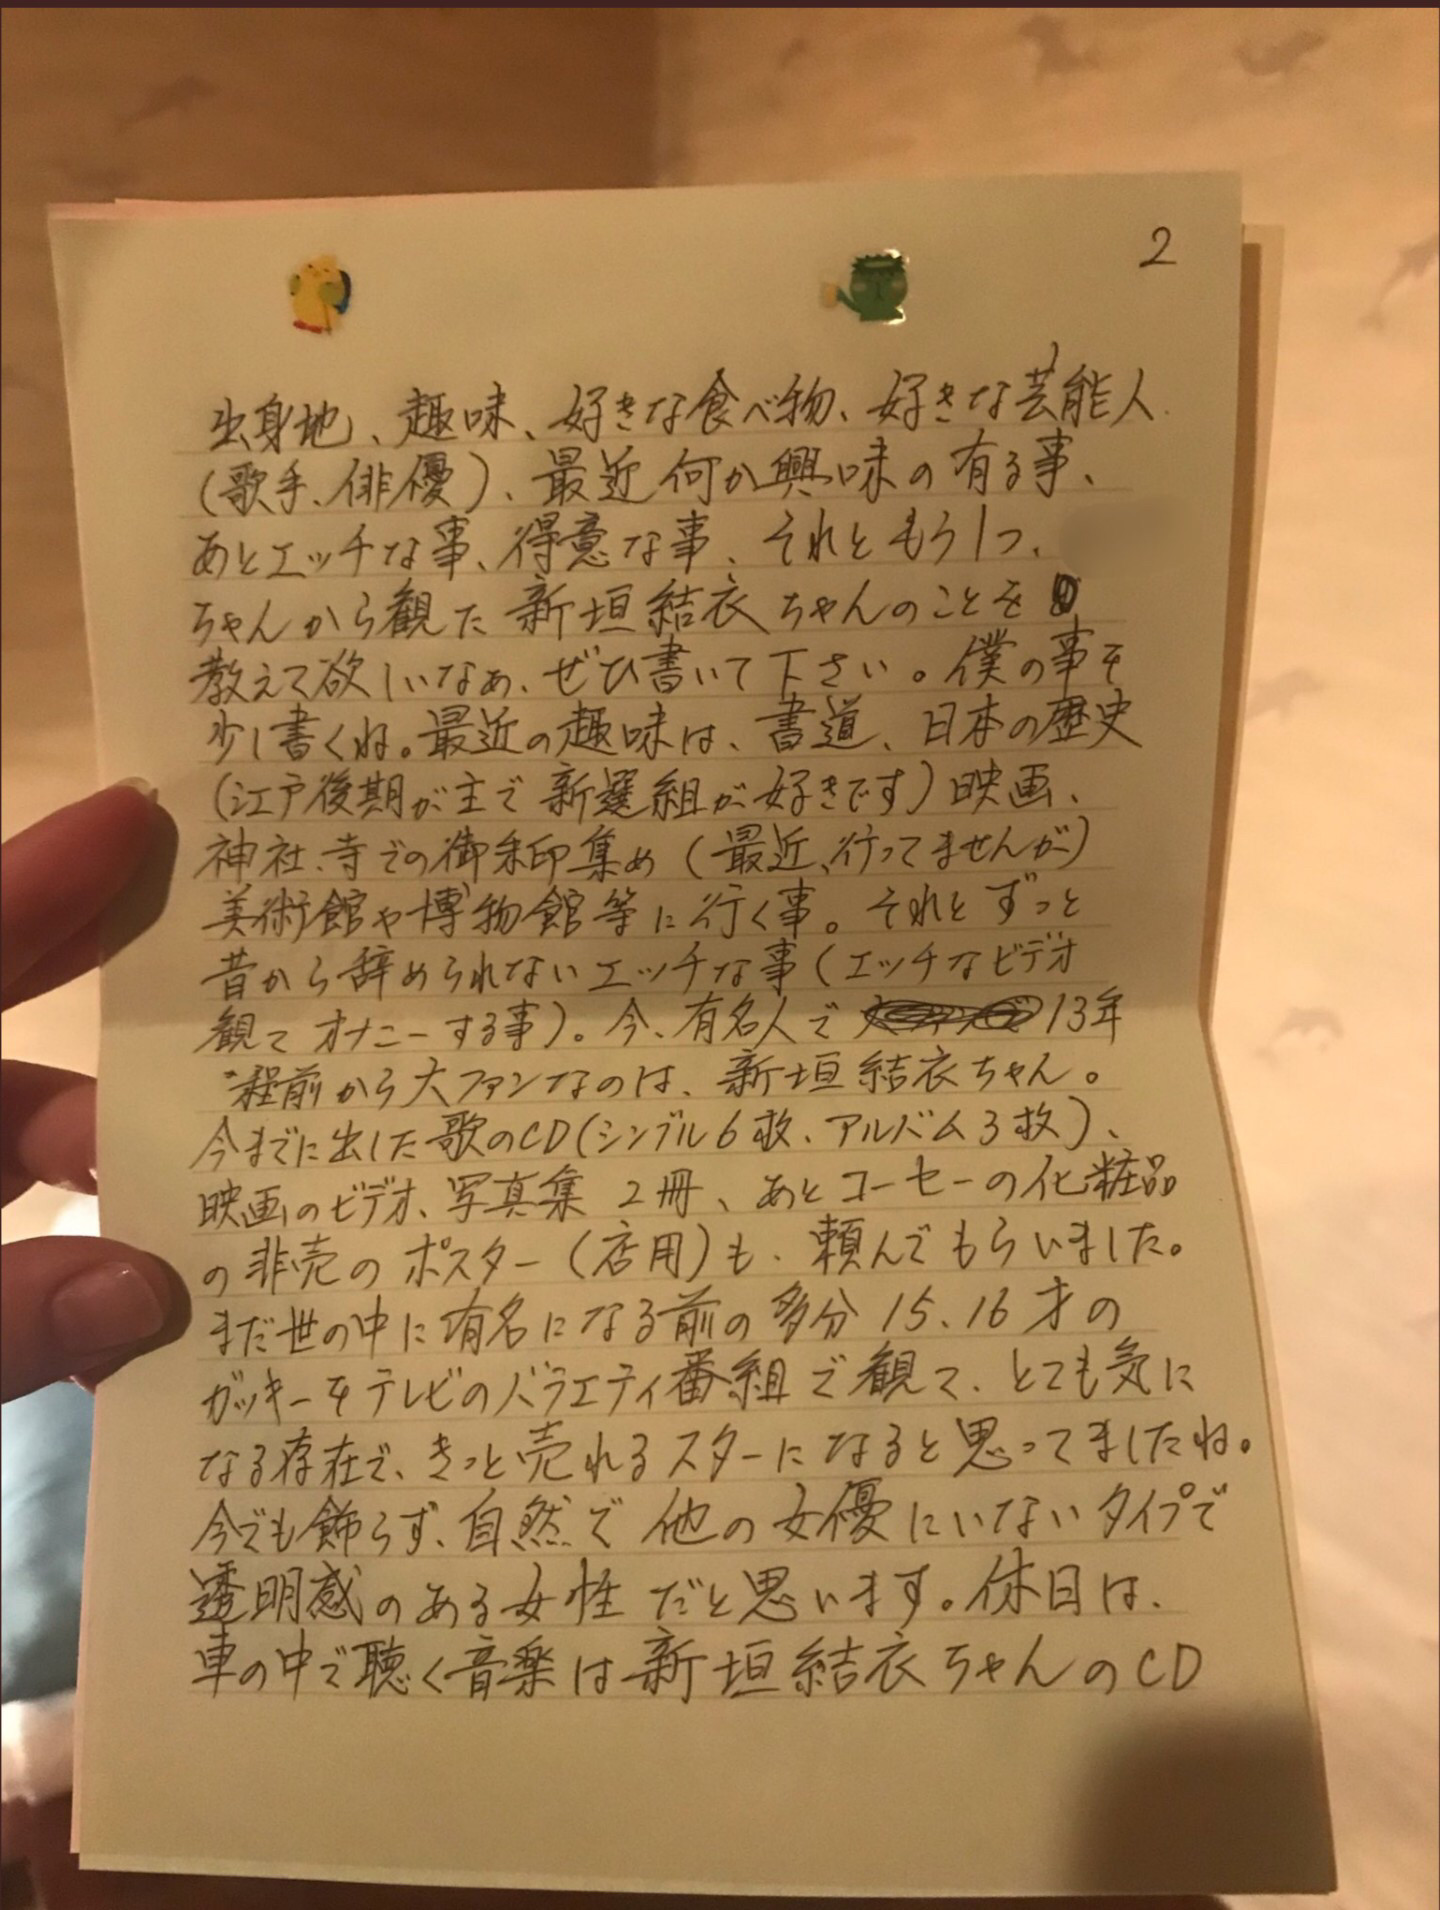 2
出身地、趣味、好きな食べ物、好きな芸能人
(歌手、俳優)、最近何か興味の有る事、
あとエッチな事、得意な事、それともう1つ、
ちゃんから観た新垣結衣ちゃんのことを
教えて欲しいなぁ、ぜひ書いて下さい。僕の事を
少し書くね。最近の趣味は、書道、日本の歴史
(江戸後期が主で新選組が好きです)映画、
神社、寺での御朱印集め(最近、行ってませんが)
美術館や博物館等に行く事。それとずっと
昔から辞められないエッチな事(エッチなビデオ
観てオナニーする事)。今、有名人で 13年
程前から大ファンなのは、新垣結衣ちゃん。
今までに出した歌のCD(シングル6枚、アルバム3枚)、
映画のビデオ、写真集 2冊、あとコーセーの化粧品
の非売のポスター(店用)も、頼んでもらいました。
まだ世の中に有名になる前の多分15、16才の
ガッキーをテレビのバラエティ番組で観て、とても気に
なる存在で、きっと売れるスターになると思ってましたね。
今でも飾らず、自然で他の女優にいないタイプで
透明感のある女性だと思います。休日は、
車の中で聴く音楽は新垣結衣ちゃんのCD